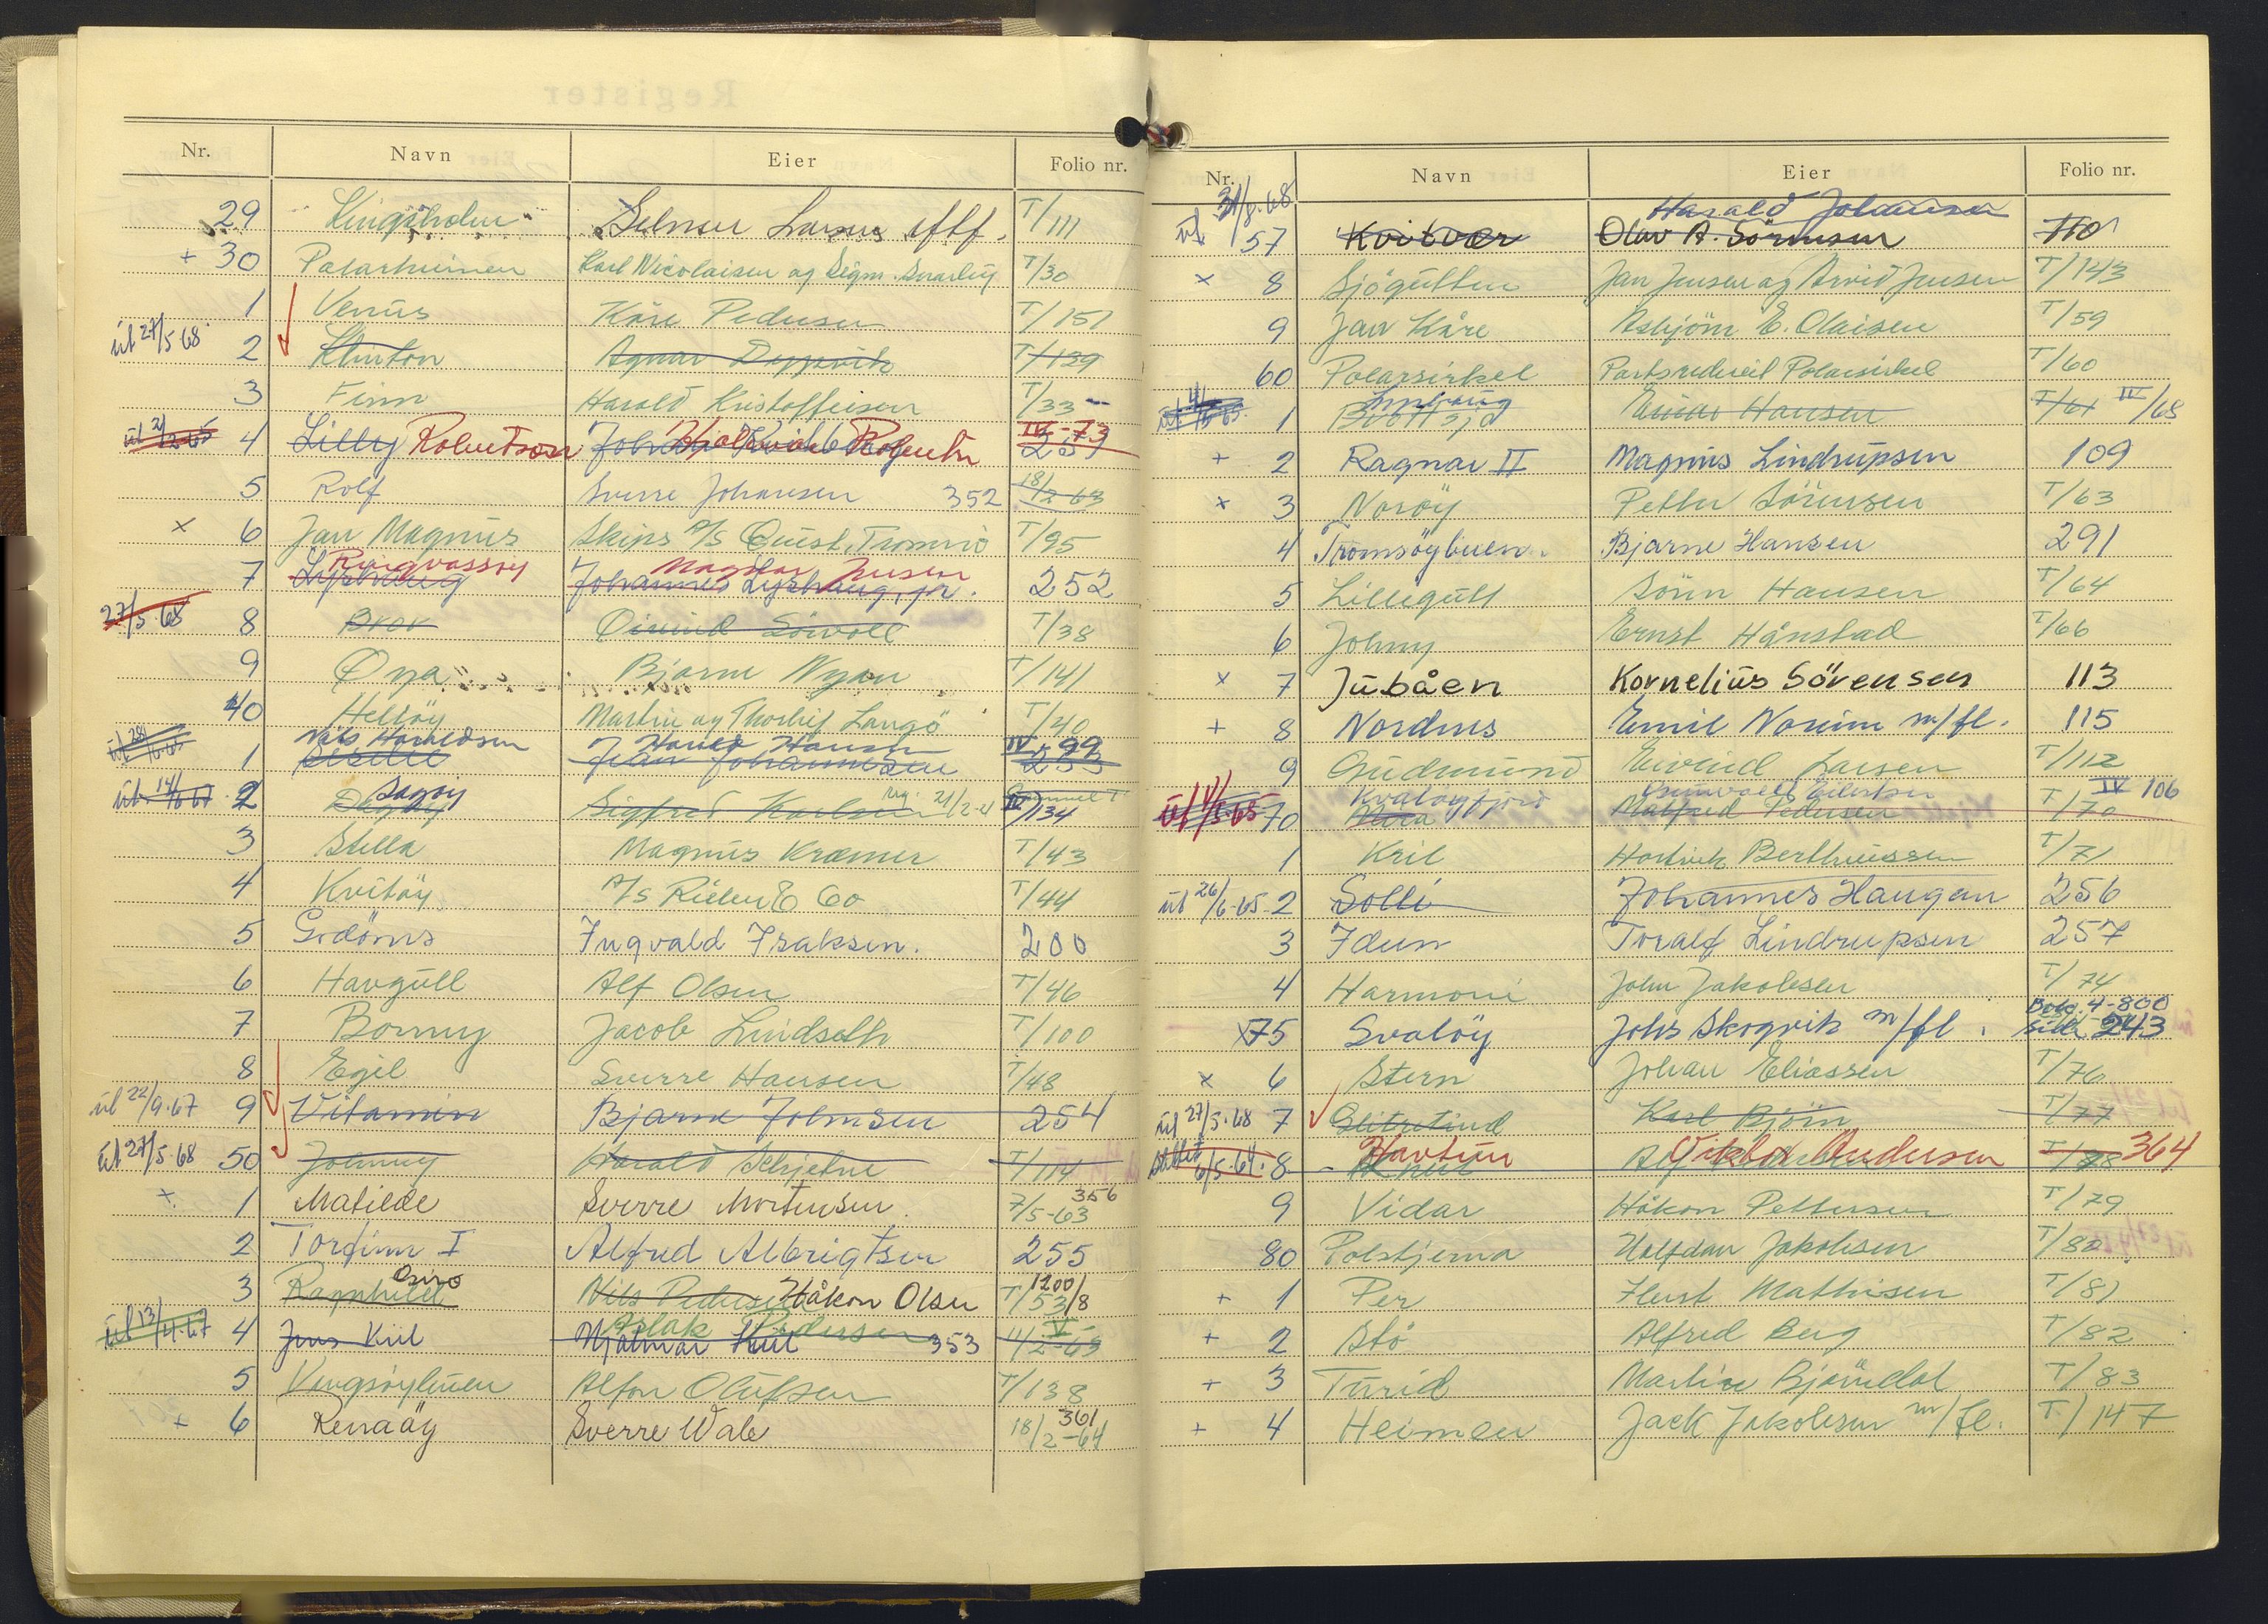 Nr. Navn Eier Folio nr.
29 Selmer Larsens T/111
+ 30 Karl Nicolaisen og Sigm. T/30
1 Venus Kåre Pedersen T/151
ut 27/5-68 2 Klinton Agnar T/139
3 Finn Harald Kristoffersen T/33
4 Lilly Robertson IV-73
5 Rolf Sverre Johansen 352 18/2-63
x 6 Jan Magnus Skips A/S Quest, Tromsø T/95
7 Ringvassøy Johannes Lyshaug, jr. 252
27/5-68 8 Brok T/38
9 Øya Bjarne Nyan T/141
40 Helløy Martin og Thorleif Langö T/40
Nils Haraldsen Hansen IV-99
1 Johannessen 253
ut 14/6-67 2 Sagøy Sigfred Karlsen 21/2 IV/134
3 Stella Magnus Kræmer T/43
4 Kvitøy A/S Rieber & Co T/44
5 Ingvald Isaksen. 200
6 Havgull Alf Olsen T/46
7 Jacob Lindseth T/100
8 Egil Sverre Hansen T/48
ut 22/9-67 9 Vitamin Bjarne Johnsen 254
ut 27/5-68 50 Johnny Harald T/114
+ 1 Matilde Sverre Mortensen 356 7/5-63
2 Torfinn I Alfred Albrigtsen 255
3 Ragnhild Osiro Nils Pedersen Håkon Olsen T/53
ut 13/4-67 4 Jens Kiil Aslak Pedersen Hjalmar Kiil 353 V
5 Vengsøybuen Alfon Olufsen T/138
+ 6 Sverre Wale 361 18/2-64
Nr. Navn Eier Folio nr.
ut 31/8-68 Harald Johansen
57 Kvitvær Olav A. Sörensen 110
x 8 Sjøgutten Jan Jensen og Arvid Jensen T/143
9 Jan Kåre Asbjörn E. Olaisen T/59
60 Polarsirkel Partsrederiet Polarsirkel T/60
1 Hansen T/61 IV/65
+ 2 Ragnar II Magnus Lindrupsen 109
x 3 Norøy Petter Sörensen T/63
4 Tromsøybuen Bjarne Hansen 291
5 Lillegutt Sören Hansen T/64
6 Johny Ernst Hånstad T/66
x 7 Jubåen Kornelius Sörensen 113
+ 8 Nordnes Emil m/fl. 115
9 Gudmund Eivind Larsen T/112
Kvaløyfjord IV 106
70 Malfred Pedersen T/70
1 Kril Bertheussen T/71
ut 26/6-65 2 Solli Johannes Haugan 256
3 Idun Toralf Lindrupsen 257
4 Harmoni John Jakobsen T/74
x 75 Svaløy Johs Skogvik m/fl. 243
x 6 Stern Johan Eliassen T/76
ut 27/5-68 7 Glitretind Karl Björn T/77
6/5-64 8 Havtun Viktor Andersen T/78 364
9 Vidar Håkon Pettersen T/79
80 Polstjerna Halfdan Jakobsen T/80
+ 1 Per Mathisen T/81
+ 2 Stø Alfred Berg T/82
+ 3 Turid Martin Björndal T/83
+ 4 Heimen Jack Jakobsen m/fl. T/147